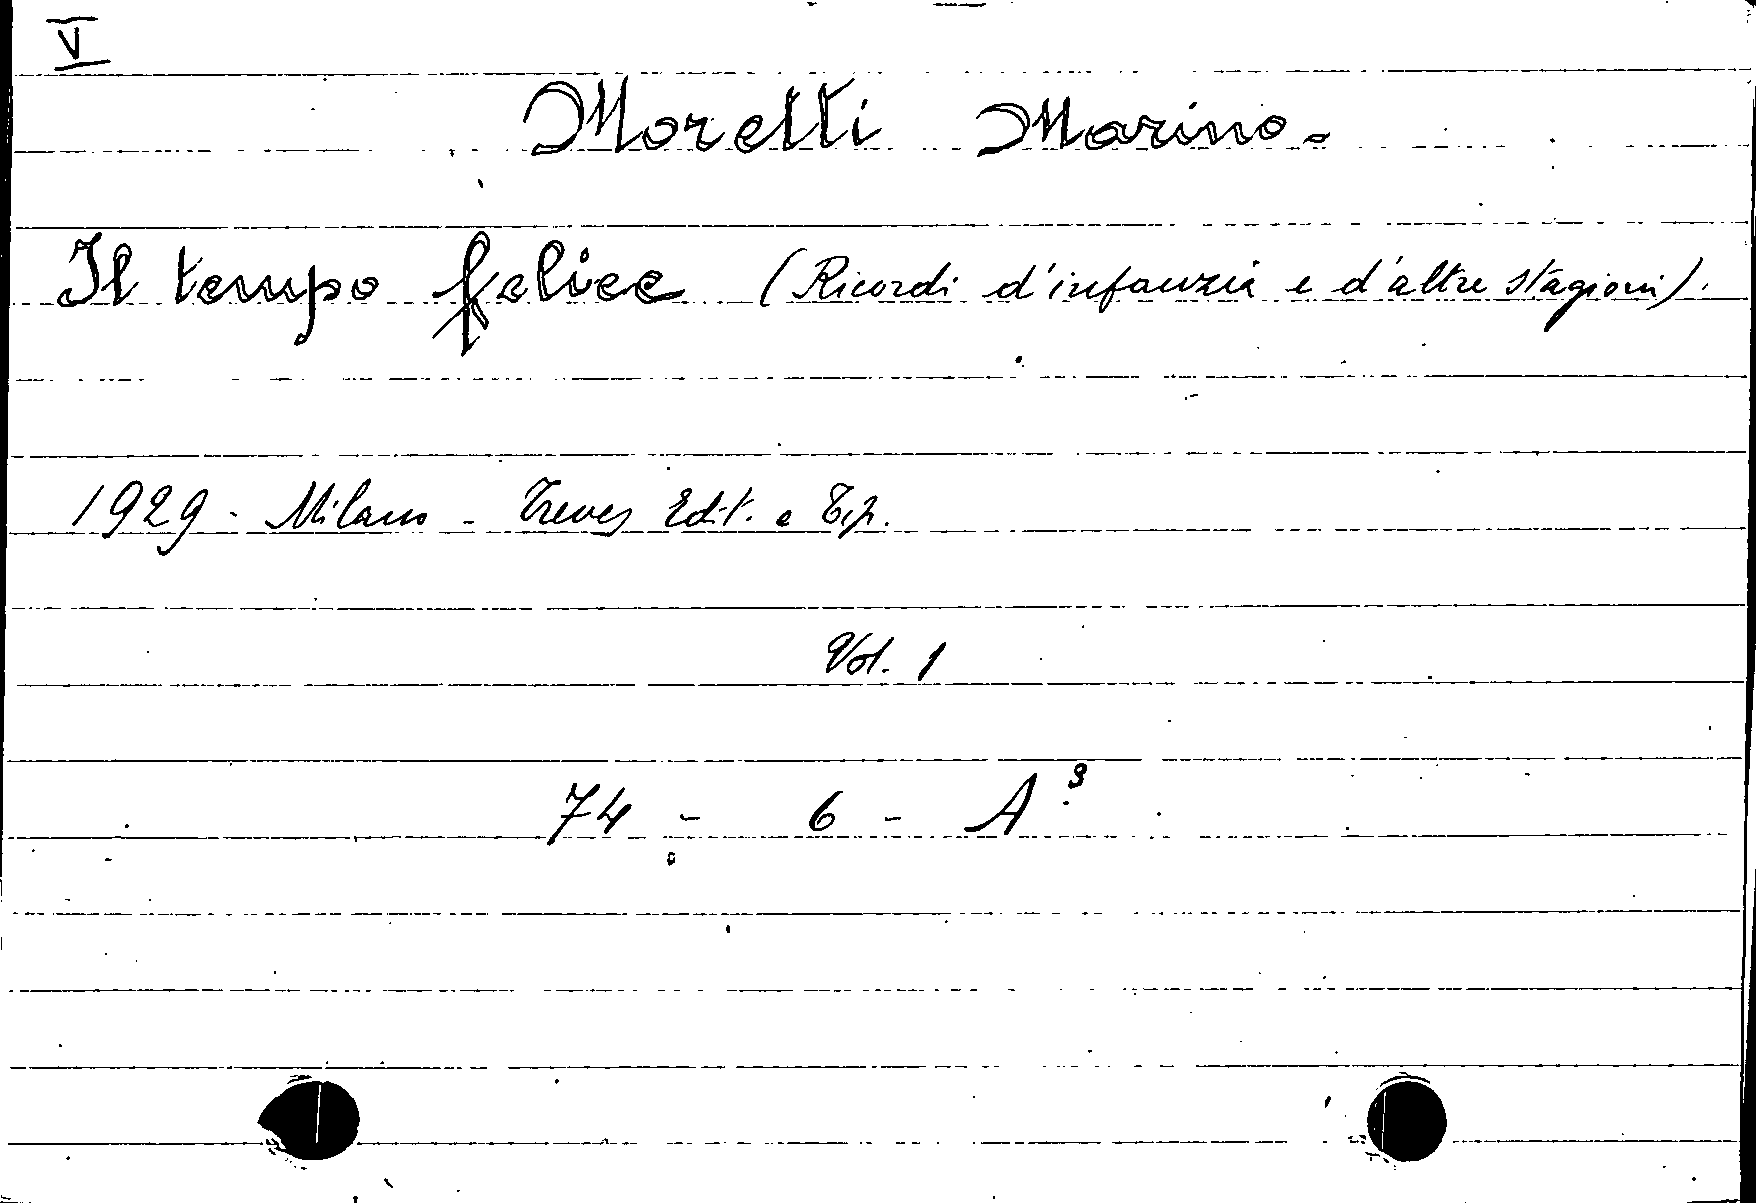 V
Moretti Marino.
Il tempo felice (Ricordi d'infanzia e d'altre stagioni).
1929 - Milano - Treves Edit. e Tip.
Vol. 1
74 - 6 - A³